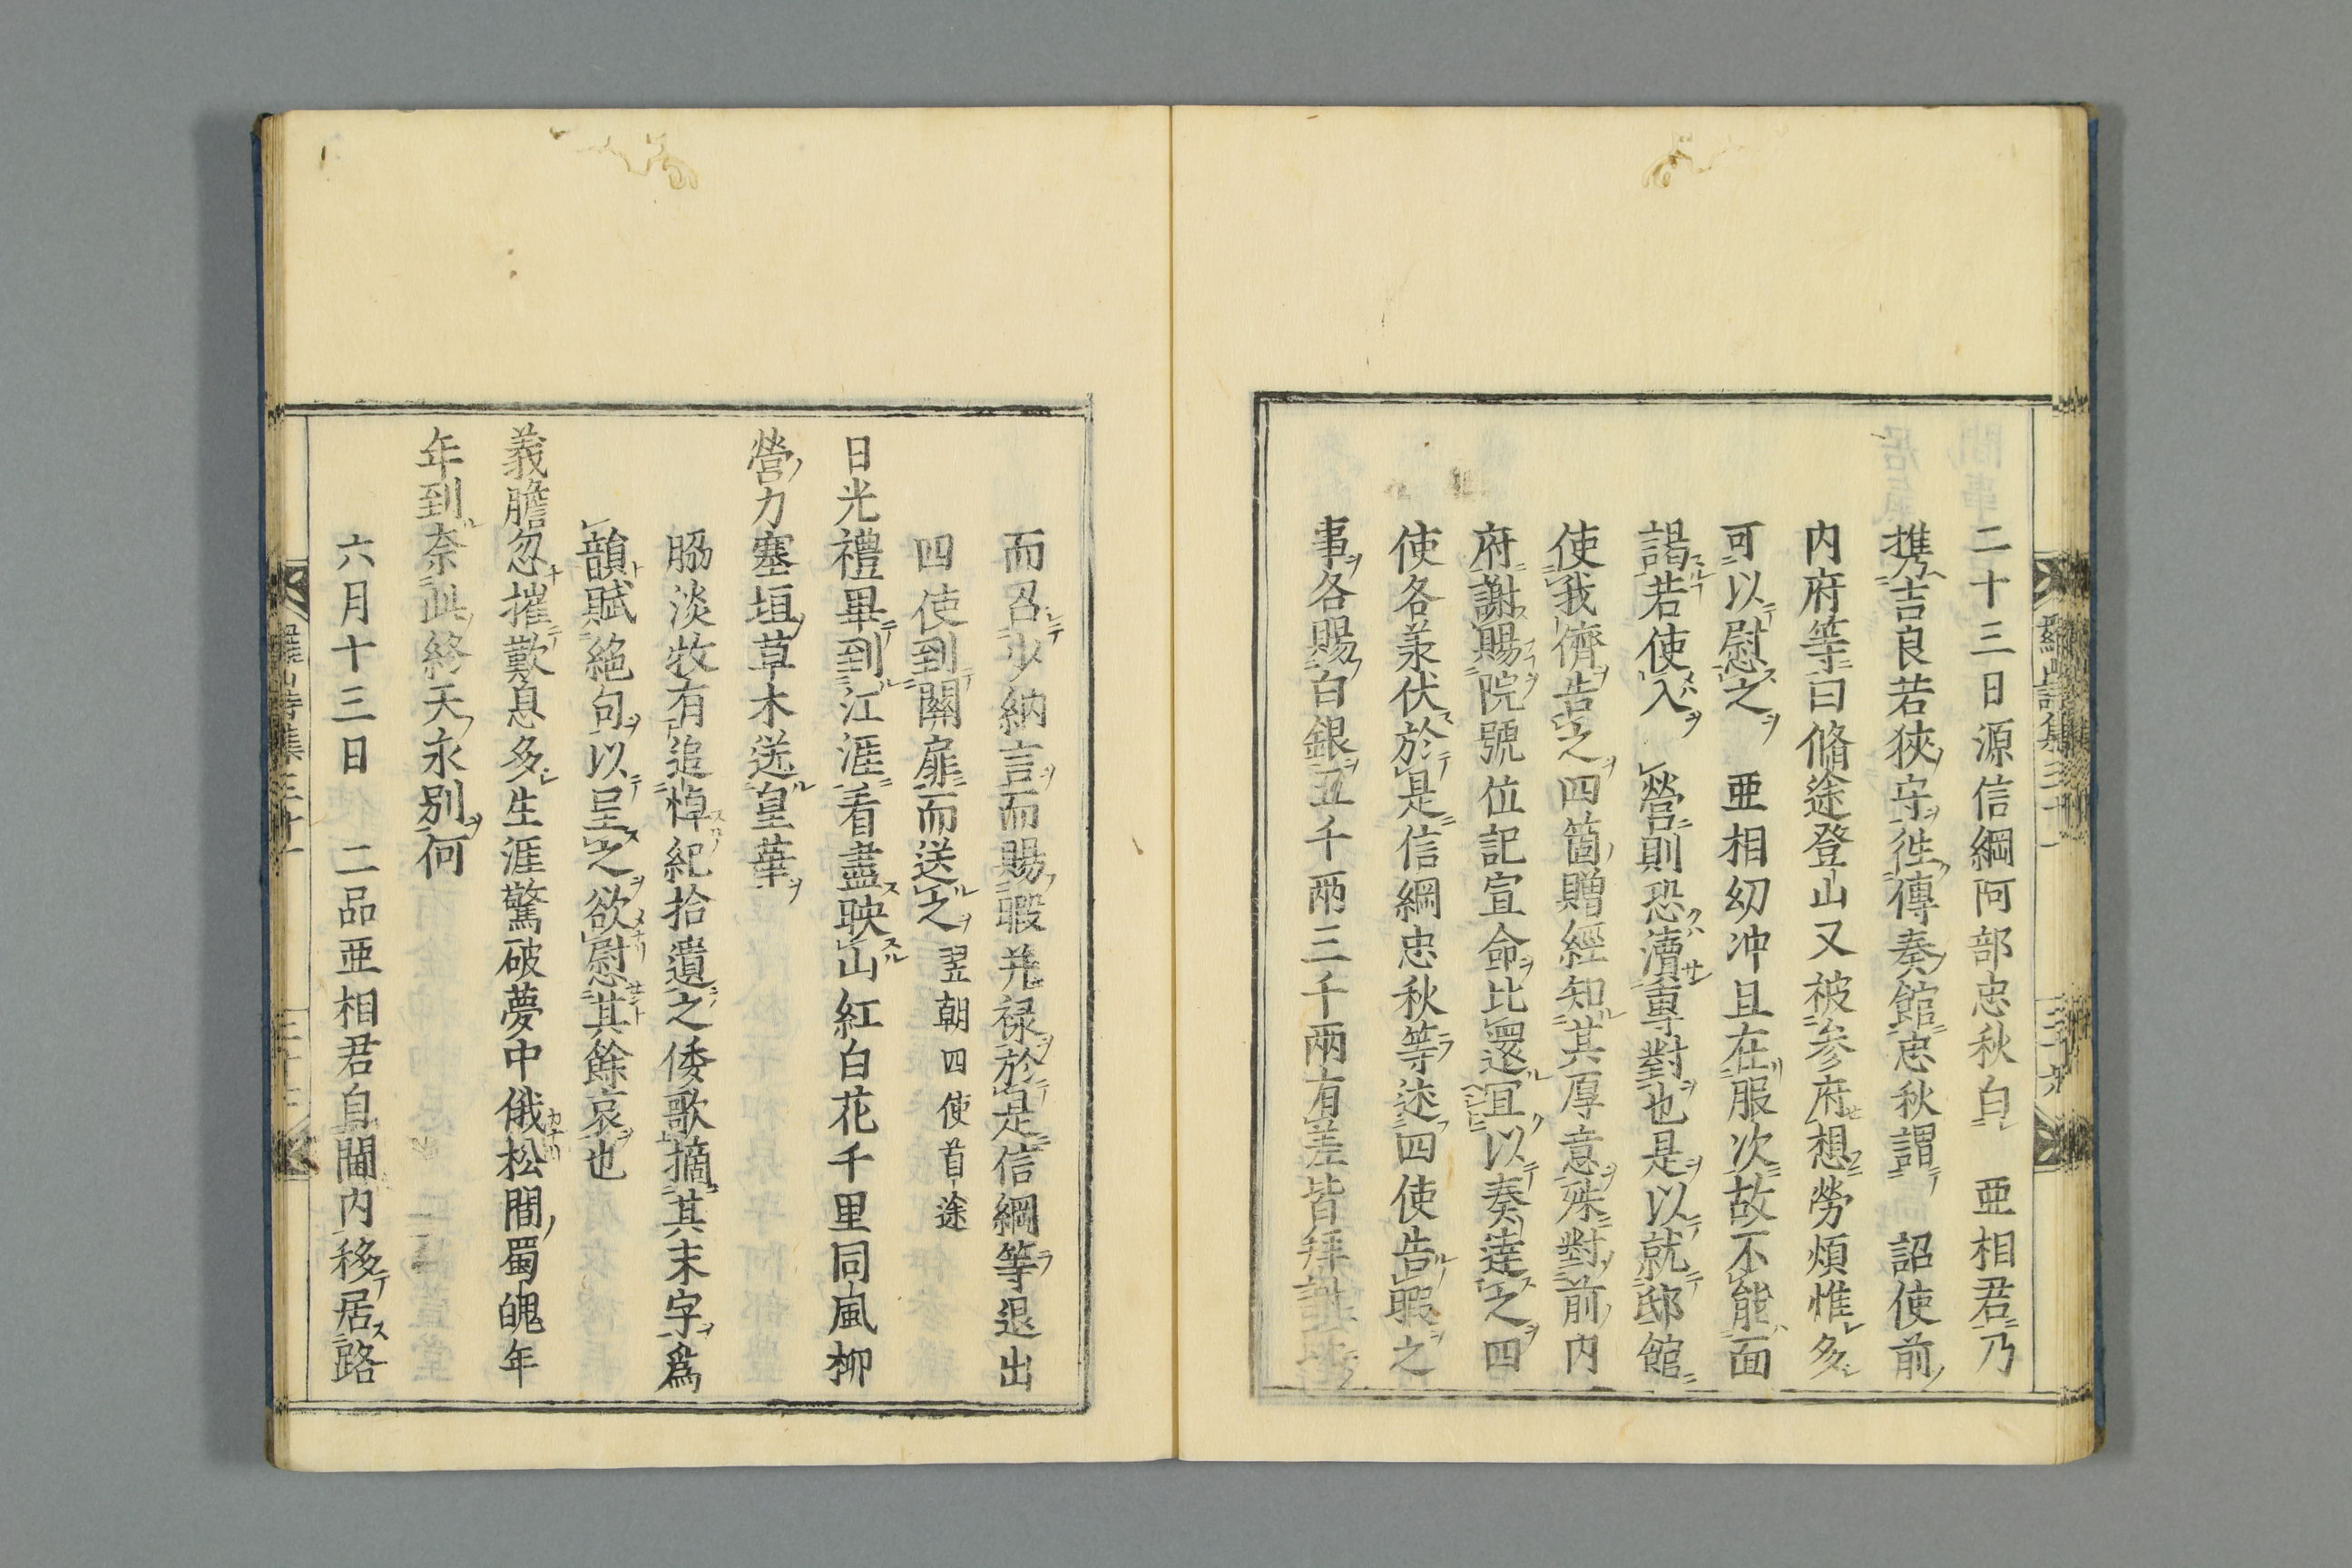 二十三日源信綱阿部忠秋白　亜相君乃
携吉良若狹守徃傳奏館忠秋謂　詔使前
内府等曰脩途登山又被参府想勞煩惟多
可以慰之　亜相幼冲且在服次故不能面
謁若使入　營則恐瀆重對也是以就邸館
使我儕告之四箇贈經知其厚意殊對前内
府謝賜院號位記宣命比還冝以奏達之四
使各羕伏於是信綱忠秋等述四使告暇之
事各賜白銀五千兩三千兩有差皆拜謝
而召少納言而賜暇并禄於是信綱等退出
四使到關扉而送之翌朝四使首途
日光禮畢到江涯看盡映山紅白花千里同風柳
營力塞垣草木送皇華
脇淡牧有追悼紀拾遺之倭歌摘其末字爲
韻賦絶句以呈之欲慰其餘哀也
義膽忽摧歎息多生涯驚破夢中俄松間蜀魄年
年到奈此終天永別何
六月十三日　二品亜相君自閫内移居路